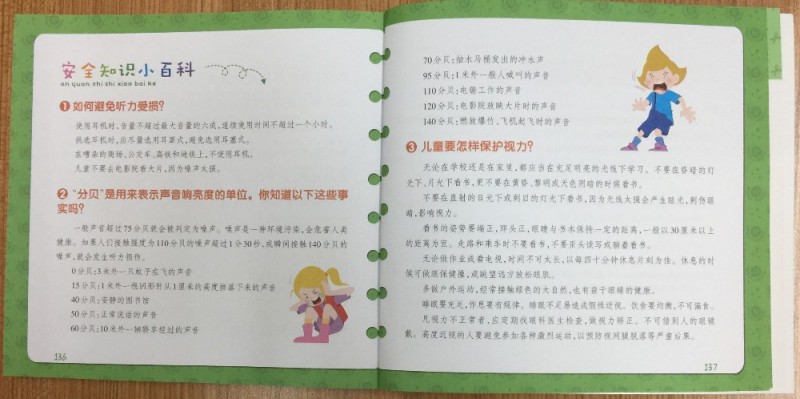 安全知识小百科
an quan zhi shi xiao bai ke
1 如何避免听力受损？
使用耳机时，音量不超过最大音量的六成，连续使用时间不超过一个小时。
挑选耳机时，应尽量选用耳罩式，避免选用耳塞式。
在嘈杂的商场、公交车、高铁和地铁上，不使用耳机。
儿童不要去电影院看大片，因为噪声太强。
2 “分贝”是用来表示声音响亮度的单位。你知道以下这些事
实吗？
一般声音超过75分贝就会被判定为噪声。噪声是一种环境污染，会危害人类
健康。如果人们接触强度为110分贝的噪声超过1分30秒，或瞬间接触140分贝的
噪声，就会发生听力损伤。
0分贝：3米外一只蚊子在飞的声音
15分贝：1米外一根回形针从1厘米的高度掉落下来的声音
40分贝：安静的图书馆
50分贝：正常说话的声音
60分贝：10米外一辆轿车经过的声音
136
70分贝：抽水马桶发出的冲水声
95分贝：1米外一般人喊叫的声音
110分贝：电锯工作的声音
120分贝：电影院放映大片时的声音
140分贝：燃放爆竹、飞机起飞时的声音
3 儿童要怎样保护视力？
无论在学校还是在家里，都应当在充足明亮的光线下学习。不要在昏暗的灯
光下、月光下看书，更不要在黄昏、黎明或天色阴暗的时候看书。
不要在直射的日光下或刺目的灯光下看书，因为光线太强会产生眩光，刺伤眼
睛，影响视力。
看书的姿势要端正，即头正，眼睛与书本保持一定的距离，一般以30厘米以上
的距离为宜。走路和乘车时不要看书，不要歪头读写或躺着看书。
无论做作业或看电视，时间不可太长，以每四十分钟休息片刻为佳。休息的时
候可做眼保健操，或眺望远方放松眼肌。
多做户外运动，经常接触绿色的大自然，也有益于眼睛的健康。
睡眠要充足，作息要有规律。睡眠不足易造成假性近视。饮食要均衡，不可偏食。
凡视力不正常者，应定期找眼科医生检查，做视力矫正。不可借别人的眼镜
戴。高度近视的人要避免参加各种激烈运动，以预防视网膜脱落等严重后果。
137